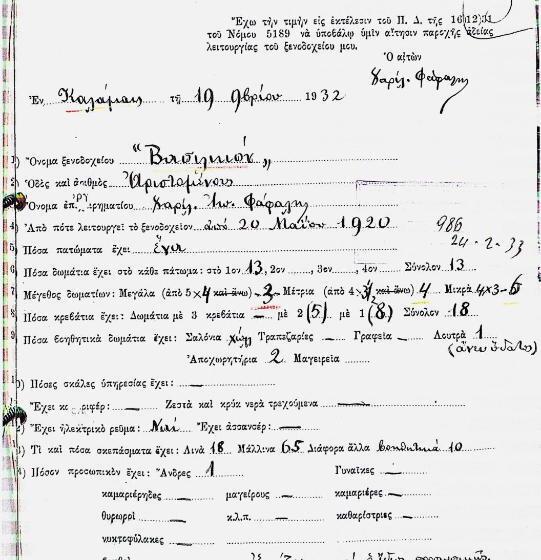 Ἔχω τὴν τιμὴν εἰς ἐκτέλεσιν τοῦ Π. Δ. τῆς 16)12)31
τοῦ Νόμου 5189 νὰ ὑποβάλω ὑμῖν αἴτησιν παροχῆς ἀδείας
λειτουργίας τοῦ ξενοδοχείου μου.
Ὁ αἰτῶν
Χαρίλ. Φάφαλης
Ἐν Καλάμαις τῇ 19 9βρίου 1932
1) Ὄνομα ξενοδοχείου "Βασιλικόν"
2) Ὁδὸς καὶ ἀριθμὸς Ἀριστομένους
Ὄνομα ἐπιχειρηματίου Χαρίλ. Ἰω. Φάφαλης
4) Ἀπὸ πότε λειτουργεῖ τὸ ξενοδοχεῖον ἀπὸ 20 Μαΐου 1920
986
24-2-33
5) Πόσα πατώματα ἔχει ἕνα
6) Πόσα δωμάτια ἔχει στὸ κάθε πάτωμα: στὸ 1ον 13, 2ον , 3ον , 4ον Σύνολον 13
7) Μέγεθος δωματίων: Μεγάλα (ἀπὸ 5×4 καὶ ἄνω) 3 Μέτρια (ἀπὸ 4× καὶ ἄνω) 4 Μικρὰ 4×3-6
8) Πόσα κρεβάτια ἔχει: Δωμάτια μὲ 3 κρεβάτια — μὲ 2 (5) μὲ 1 (8) Σύνολον 18
9) Πόσα βοηθητικὰ δωμάτια ἔχει: Σαλόνια χωλ Τραπεζαρίες — Γραφεῖα — Λουτρὰ 1
(ἄνευ ὕδατος)
Ἀποχωρητήρια 2 Μαγειρεῖα
10) Πόσες σκάλες ὑπηρεσίας ἔχει: —
Ἔχει καλοριφέρ: — Ζεστὰ καὶ κρύα νερὰ τρεχούμενα —
2) Ἔχει ἠλεκτρικὸ ρεῦμα: Ναί Ἔχει ἀσσανσέρ: —
3) Τί καὶ πόσα σκεπάσματα ἔχει: Λινὰ 18 Μάλλινα 65 Διάφορα ἄλλα βοηθητικά 10
4) Πόσον προσωπικὸν ἔχει: Ἄνδρες 1 Γυναῖκες —
καμαριέρηδες — μαγείρους — καμαριέρες —
θυρωροί — κ.λ.π. — καθαρίστριες —
νυκτοφύλακες —